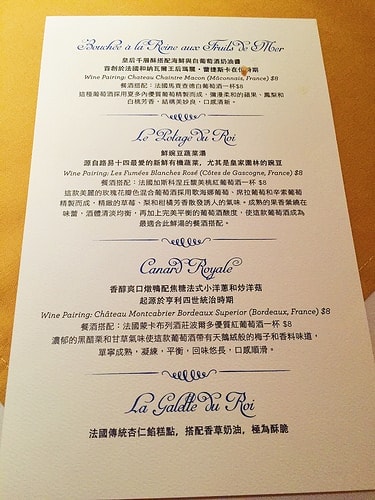 Bouchée à la Reine aux Fruits de Mer
皇后千層酥搭配海鮮與白葡萄酒奶油醬
首創於法國和納瓦爾王后瑪麗·蕾捷斯卡在位時期
Wine Pairing: Chateau Chaintre Macon (Mâconnais, France) $8
餐酒搭配：法國馬貢查德白葡萄酒一杯$8
這種葡萄酒採用夏多內優質葡萄精製而成，瀰漫柔和的蘋果、鳳梨和
白桃芳香，結構美妙良，口感清新。
Le Potage du Roi
鮮豌豆蔬菜湯
源自路易十四最愛的新鮮有機蔬菜，尤其是皇家園林的豌豆
Wine Pairing: Les Fumées Blanches Rosé (Côtes de Gascogne, France) $8
餐酒搭配：法國加斯科涅丘馥美桃紅葡萄酒一杯 $8
這款美麗的玫瑰花瓣色混合葡萄酒採用歌海娜葡萄、席拉葡萄和辛索葡萄
精製而成，精緻的草莓、梨和柑橘芳香散發誘人的氣味。成熟的果香縈繞在
味蕾，酒體清淡均衡，再加上完美平衡的葡萄酒酸度，使這款葡萄酒成為
最適合此鮮湯的餐酒搭配。
Canard Royale
香醇爽口燉鴨配焦糖法式小洋蔥和炒洋菇
起源於亨利四世統治時期
Wine Pairing: Château Montcabrier Bordeaux Superior (Bordeaux, France) $8
餐酒搭配：法國蒙卡布列酒莊波爾多優質紅葡萄酒一杯 $8
濃郁的黑醋栗和甘草氣味使這款葡萄酒帶有天鵝絨般的梅子和香料味道，
單寧成熟，凝練，平衡，回味悠長，口感順滑。
La Galette du Roi
法國傳統杏仁餡糕點，搭配香草奶油，極為酥脆